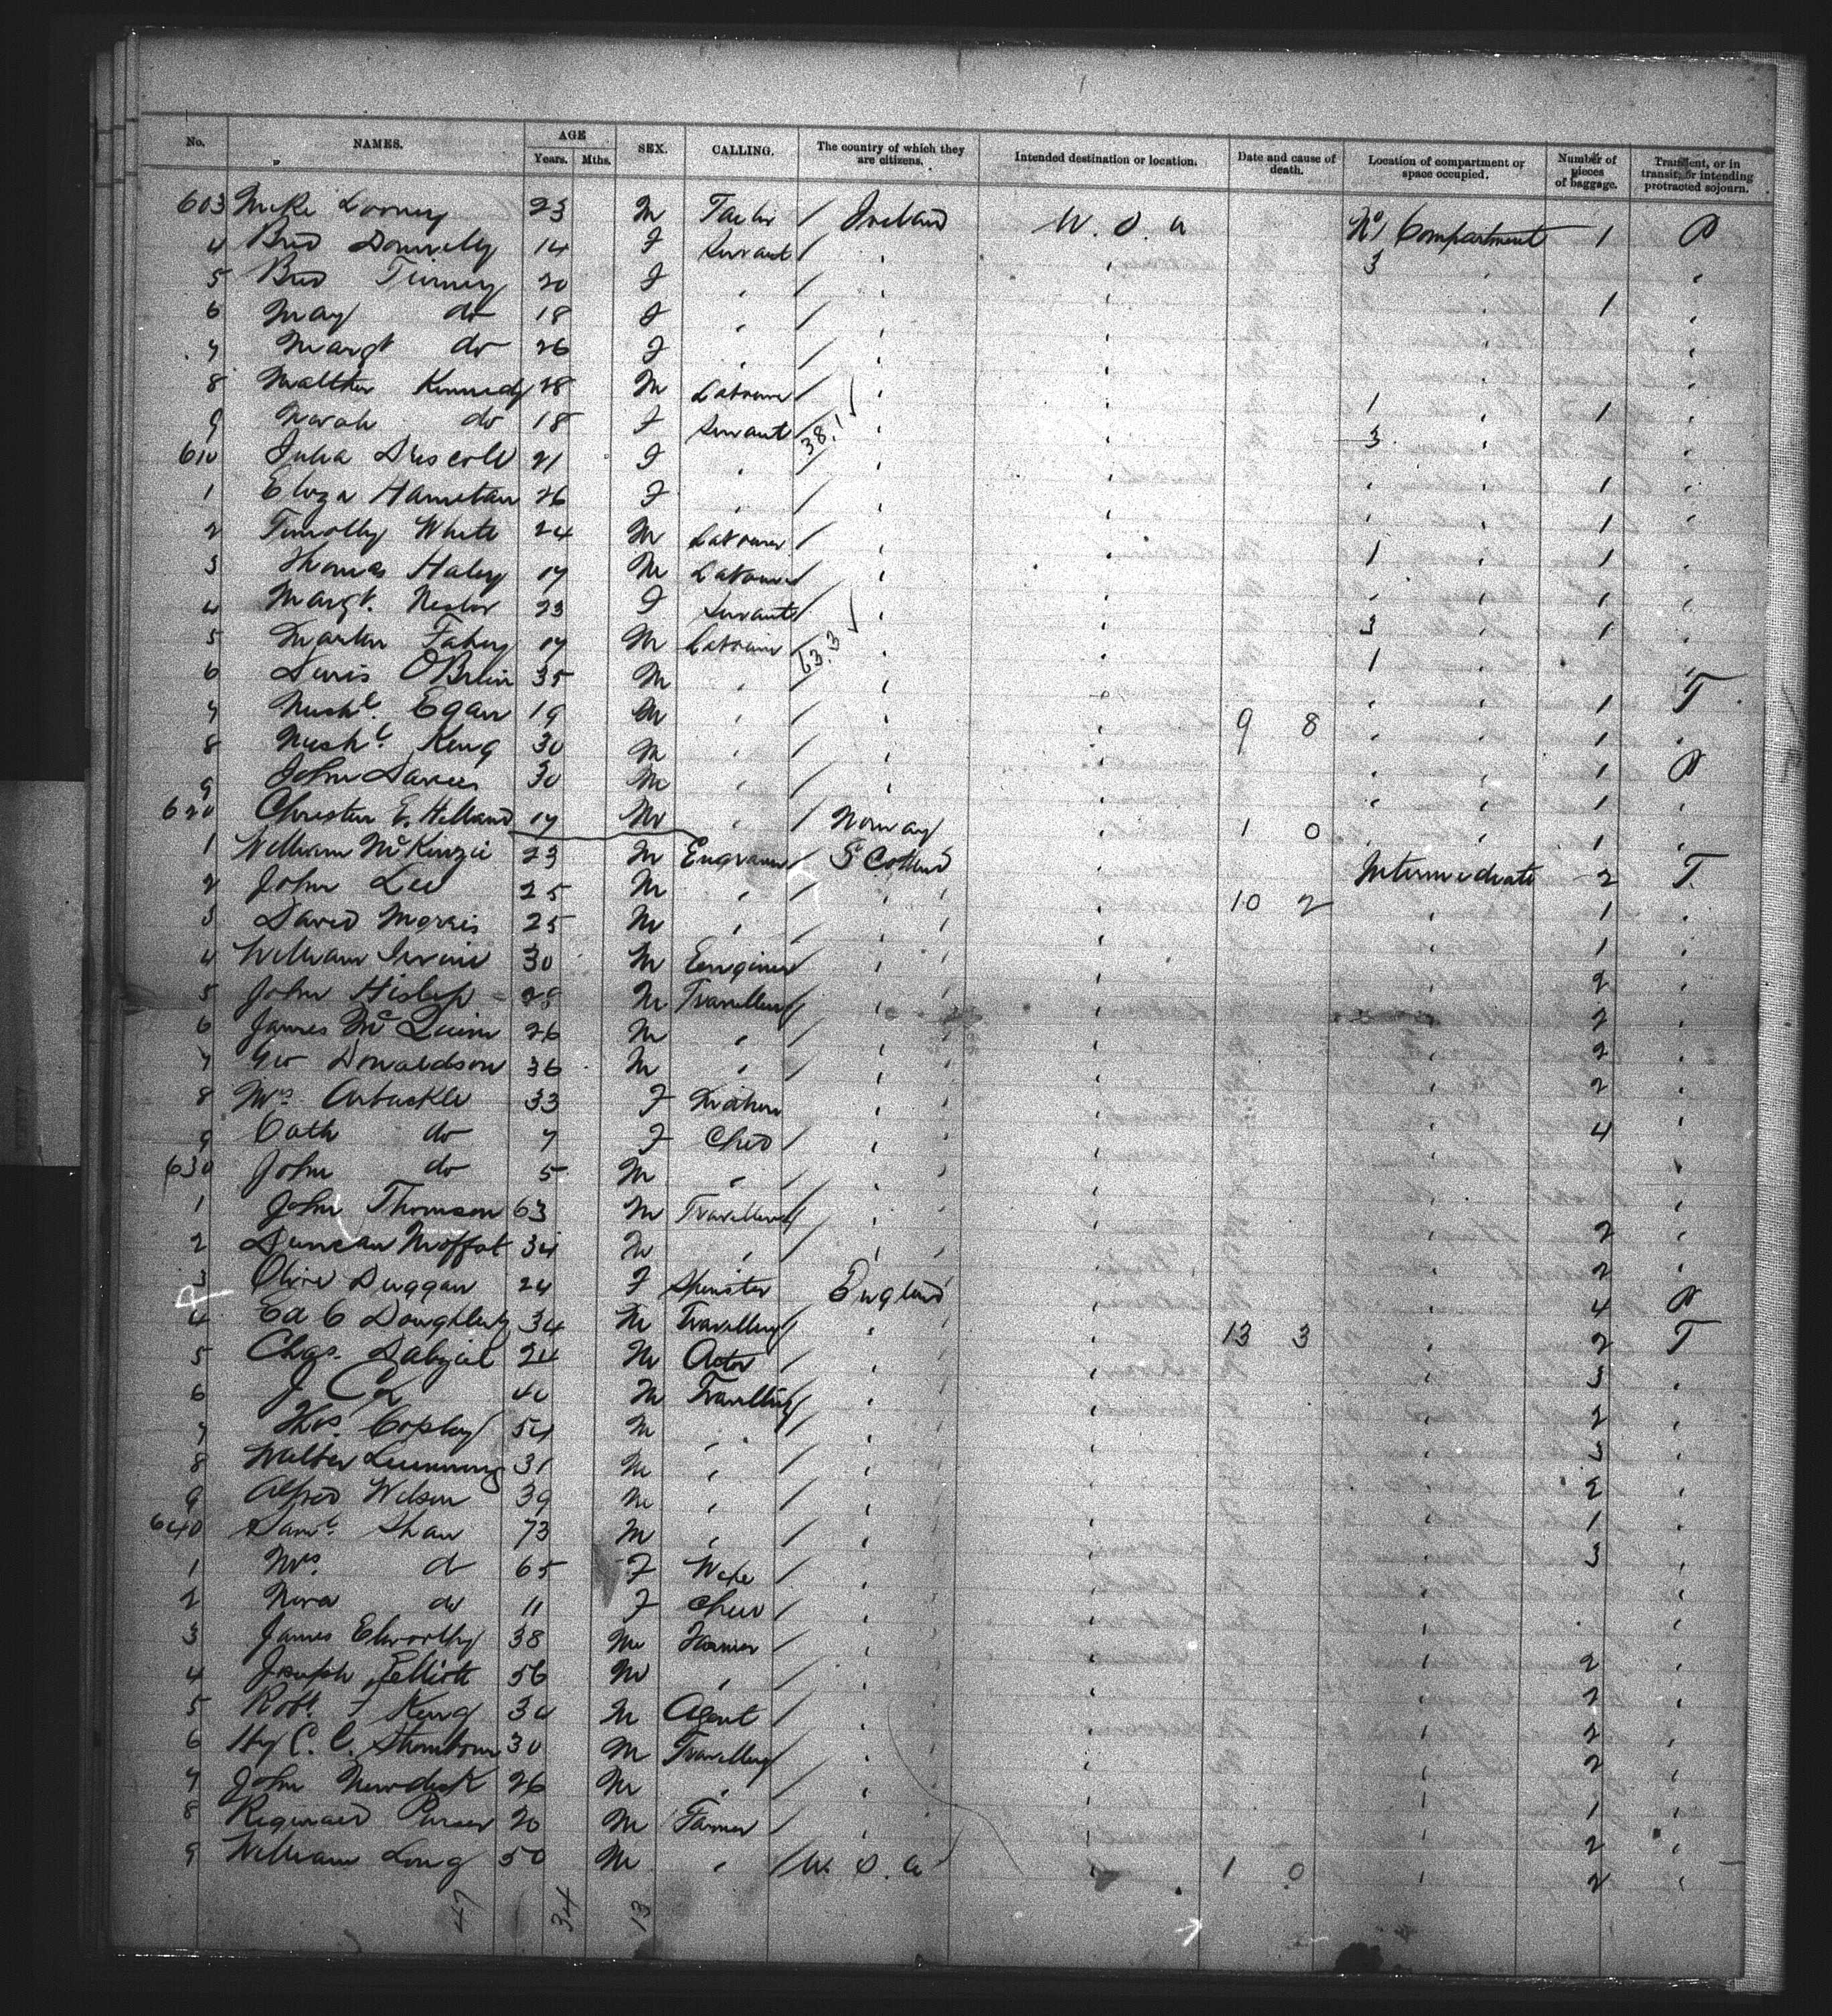 No. NAMES. AGE Years. Mths. SEX. CALLING. The country of which they are citizens. Intended destination or location. Date and cause of death. Location of compartment or space occupied. Number of pieces of baggage. Transient, or in transit, or intending protracted sojourn.
603 Mike Looney 23 M Tailor / Ireland U.S.A No 1 Compartment 1 P
4 Brid Donnelly 14 F Servant / , , 3 , ,
5 Brid Tierney 20 F , / , , 1 ,
6 May do 18 F , / , , ,
7 Margt do 26 F , / , , ,
8 Matthew Kennedy 28 M Labourer / , , 1 , 1 ,
9 Norah do 18 F Servant / 38.1 , , 3 , ,
610 Julia Driscoll 21 F , / , , , , 1 ,
1 Eliza 26 F , / , , , , 1 ,
2 Timothy White 24 M Labourer / , , 1 , 1 ,
3 Thomas Haley 17 M Labourer / , , , , 1 ,
4 Margt. Nestor 23 F Servant / , , 3 , 1 ,
5 Martin Fahey 17 M Labourer / 63.3 , , 1 , ,
6 Denis O'Brien 35 M , / , , , , 1 T
7 Michl. Egan 19 M , / , , 9 8 , , 1 ,
8 Michl. King 30 M , / , , , , 1 P
9 John Davies 30 M , / , , , , 1 ,
620 Christen E. Helland 17 M , / Norway , 1 0 , , 1 ,
1 William McKenzie 23 M Engraver / Scotland , Intermediate 2 T.
2 John Lee 25 M , / , , 10 2 , 1 ,
3 David Morris 25 M , / , , , 1 ,
4 William Irvine 30 M Engineer / , , , 2 ,
5 John Hislop 28 M Traveller / , , , 2 ,
6 James McQuinn 26 M , / , , , 2 ,
7 Geo Donaldson 36 M , / , , , 2 ,
8 Mrs Arbuckle 33 F , , , 4 ,
9 Cath do 7 F Child / , , , ,
630 John do 5 M , / , , , ,
1 John Thomson 63 M Traveller / , , , 2 ,
2 Duncan Moffat 34 M , / , , , 2 ,
3 Olive Duggan 24 F Spinster England , , 4 P
4 Ed C Dougherty 34 M Traveller / , , 13 3 , 2 T
5 Chas. Dalziel 24 M Actor / , , , 3 ,
6 J Cox 40 M Traveller / , , , 2 ,
7 Thos. Copley 54 M , / , , , 3 ,
8 Walter 31 M , / , , , 2 ,
9 Alfred Wilson 39 M , / , , , 1 ,
640 Saml. Shaw 73 M , / , , , 3 ,
1 Mrs. do 65 F Wife / , , , ,
2 Nora do 11 F Child / , , , ,
3 James Elworthy 38 M Farmer / , , , 2 ,
4 Joseph Elliott 56 M , / , , , 2 ,
5 Robt. F King 30 M Agent / , , , 2 ,
6 Hy C. C. 30 M Traveller / , , , 2 ,
7 John 26 M , / , , , 1 ,
8 Reginald Purser 20 M Farmer / , , , 2 ,
9 William Long 50 M , / U.S.A , 1 0 , 2 ,
47 34 13